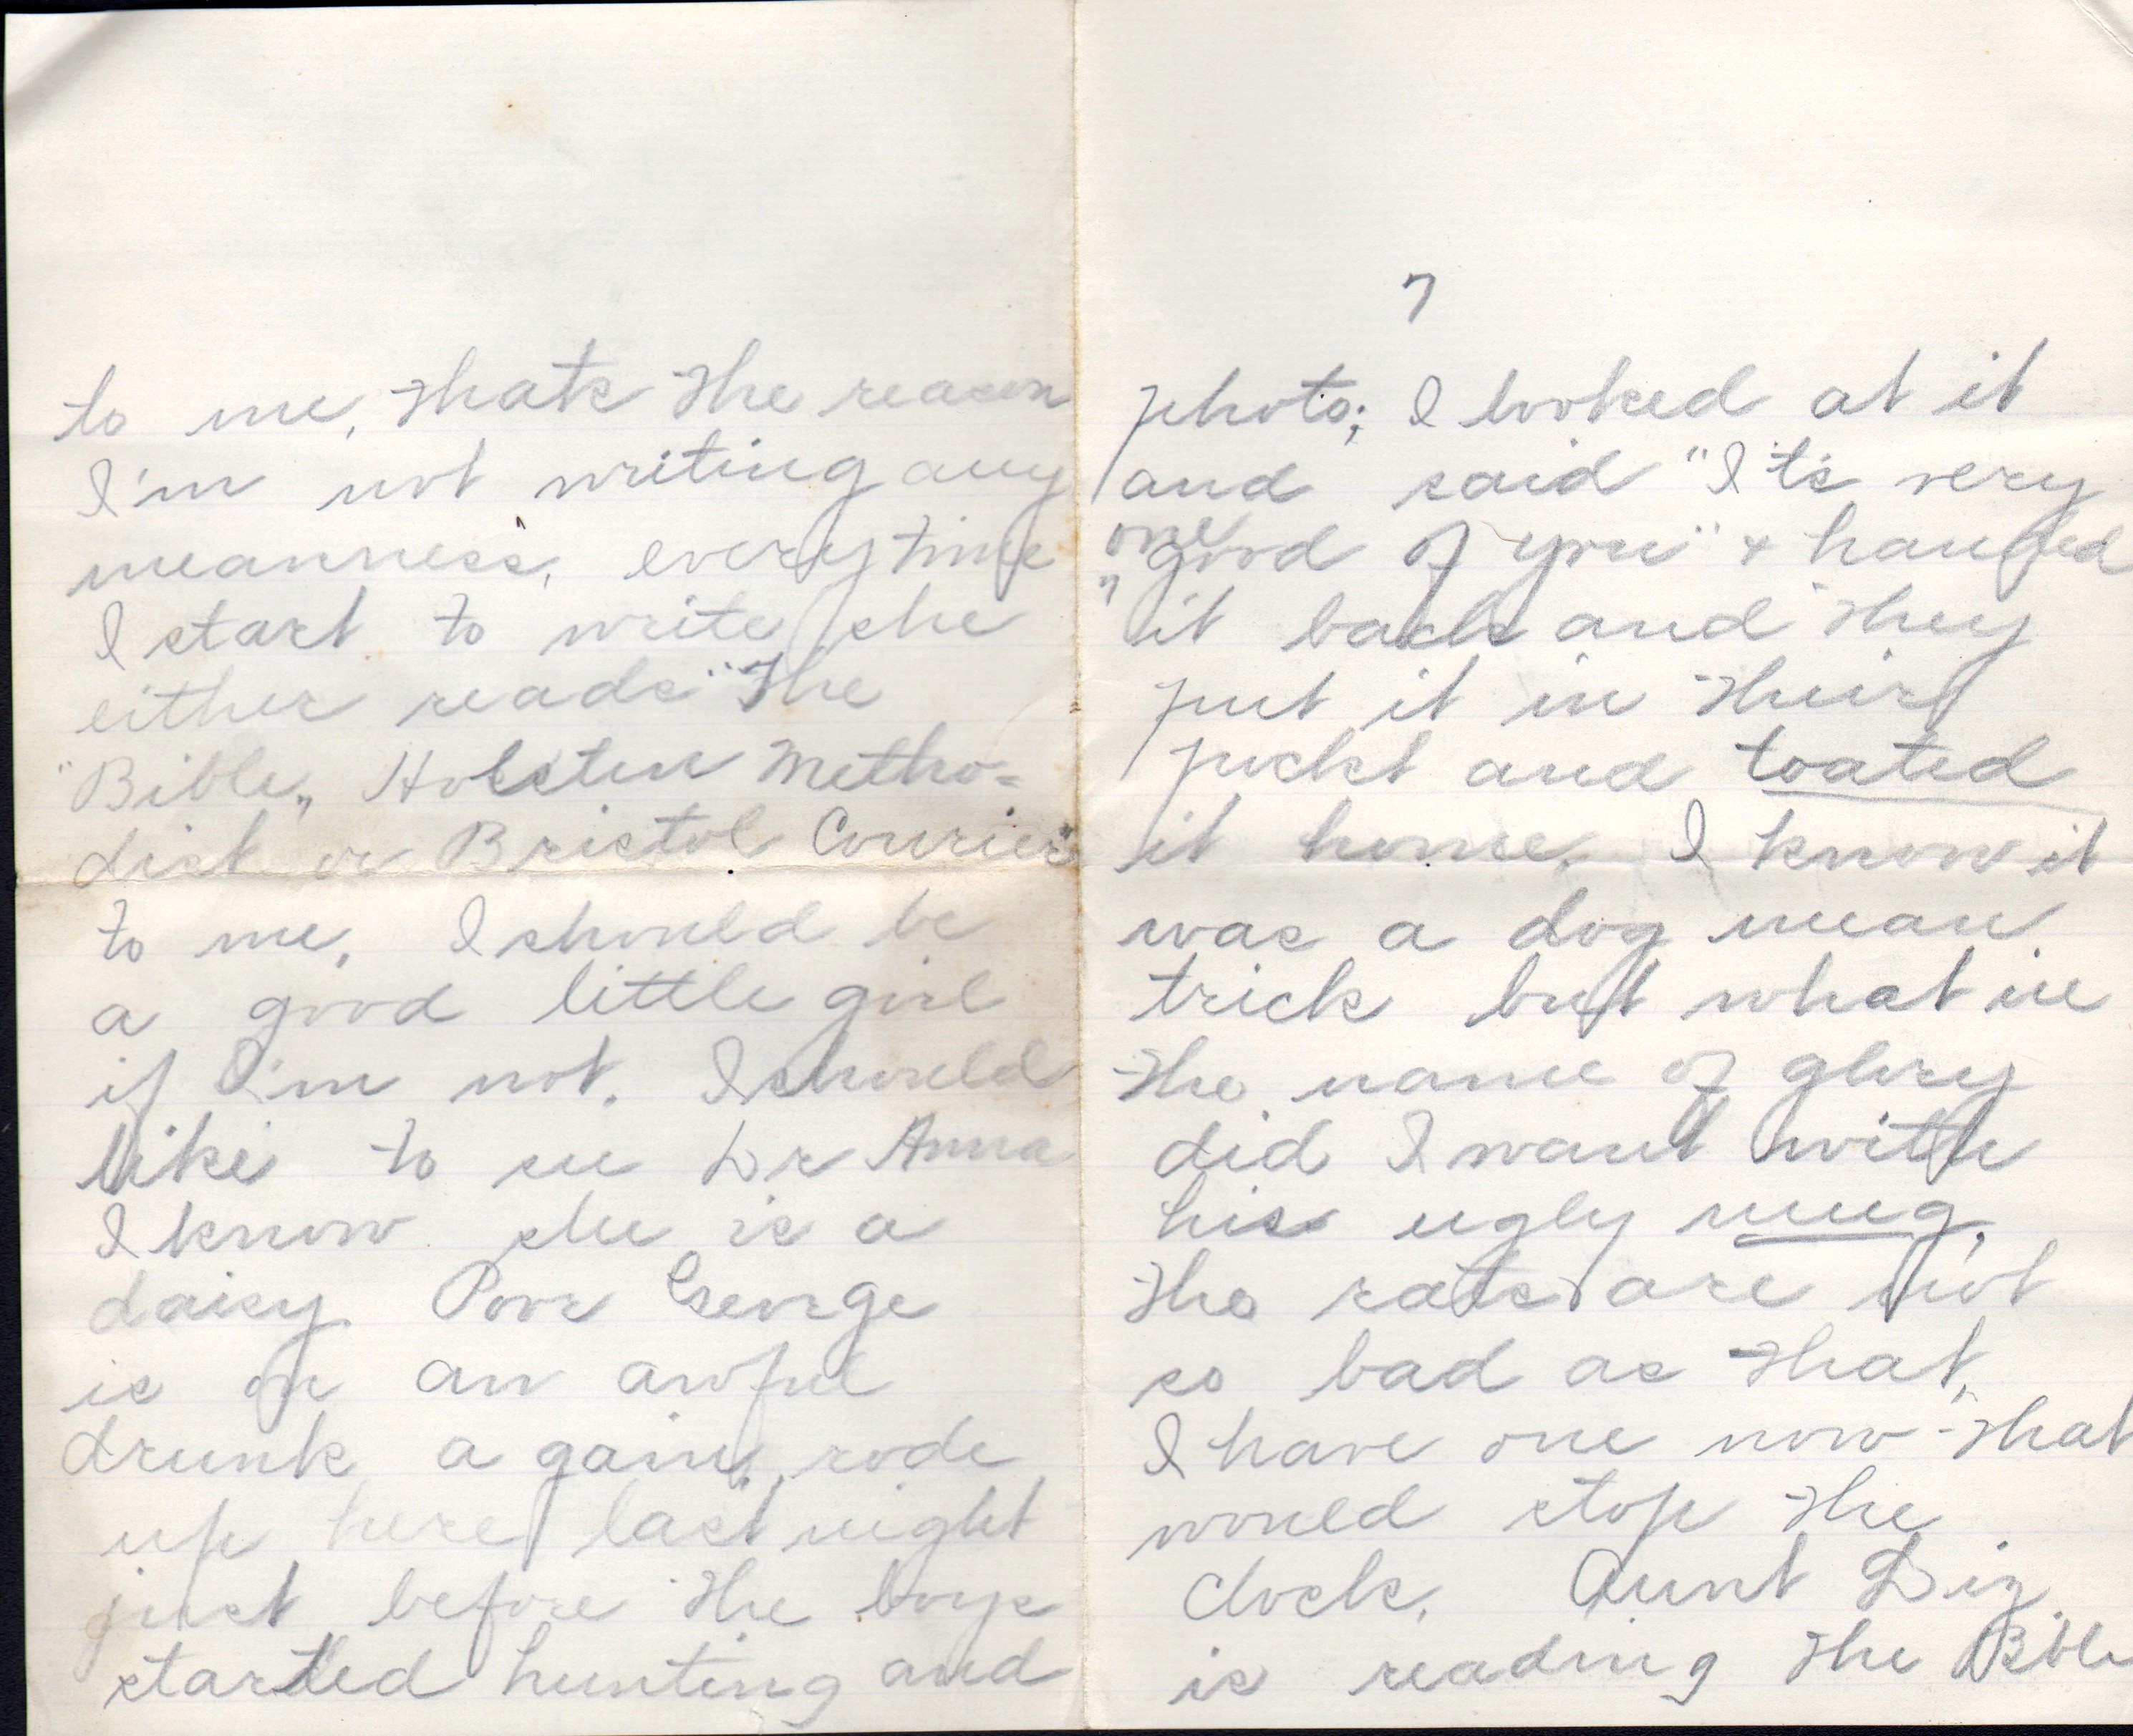 to me, thats the reason
I'm not writing any
meanness, everytime
I start to write she
either reads "The
"Bible„ Holsten Metho=
dist or Bristol Courier"
to me. I should be
a good little girl
if I'm not. I should
like to see Dr Anna
I know she is a
daisy Poor George
is on an awful
drunk a gain, rode
up here last night
just before the boys
started hunting and
7
photo; I looked at it
and said "It's very
one
"good of you" + handed
it back and they
put it in their
pocket and toated
it home. I know it
was a dog mean
trick but what in
the name of glory
did I want with
his ugly mug.
The rats are not
so bad as that,
I have one now that
would stop the
clock. Aunt Liz
is reading the Bible